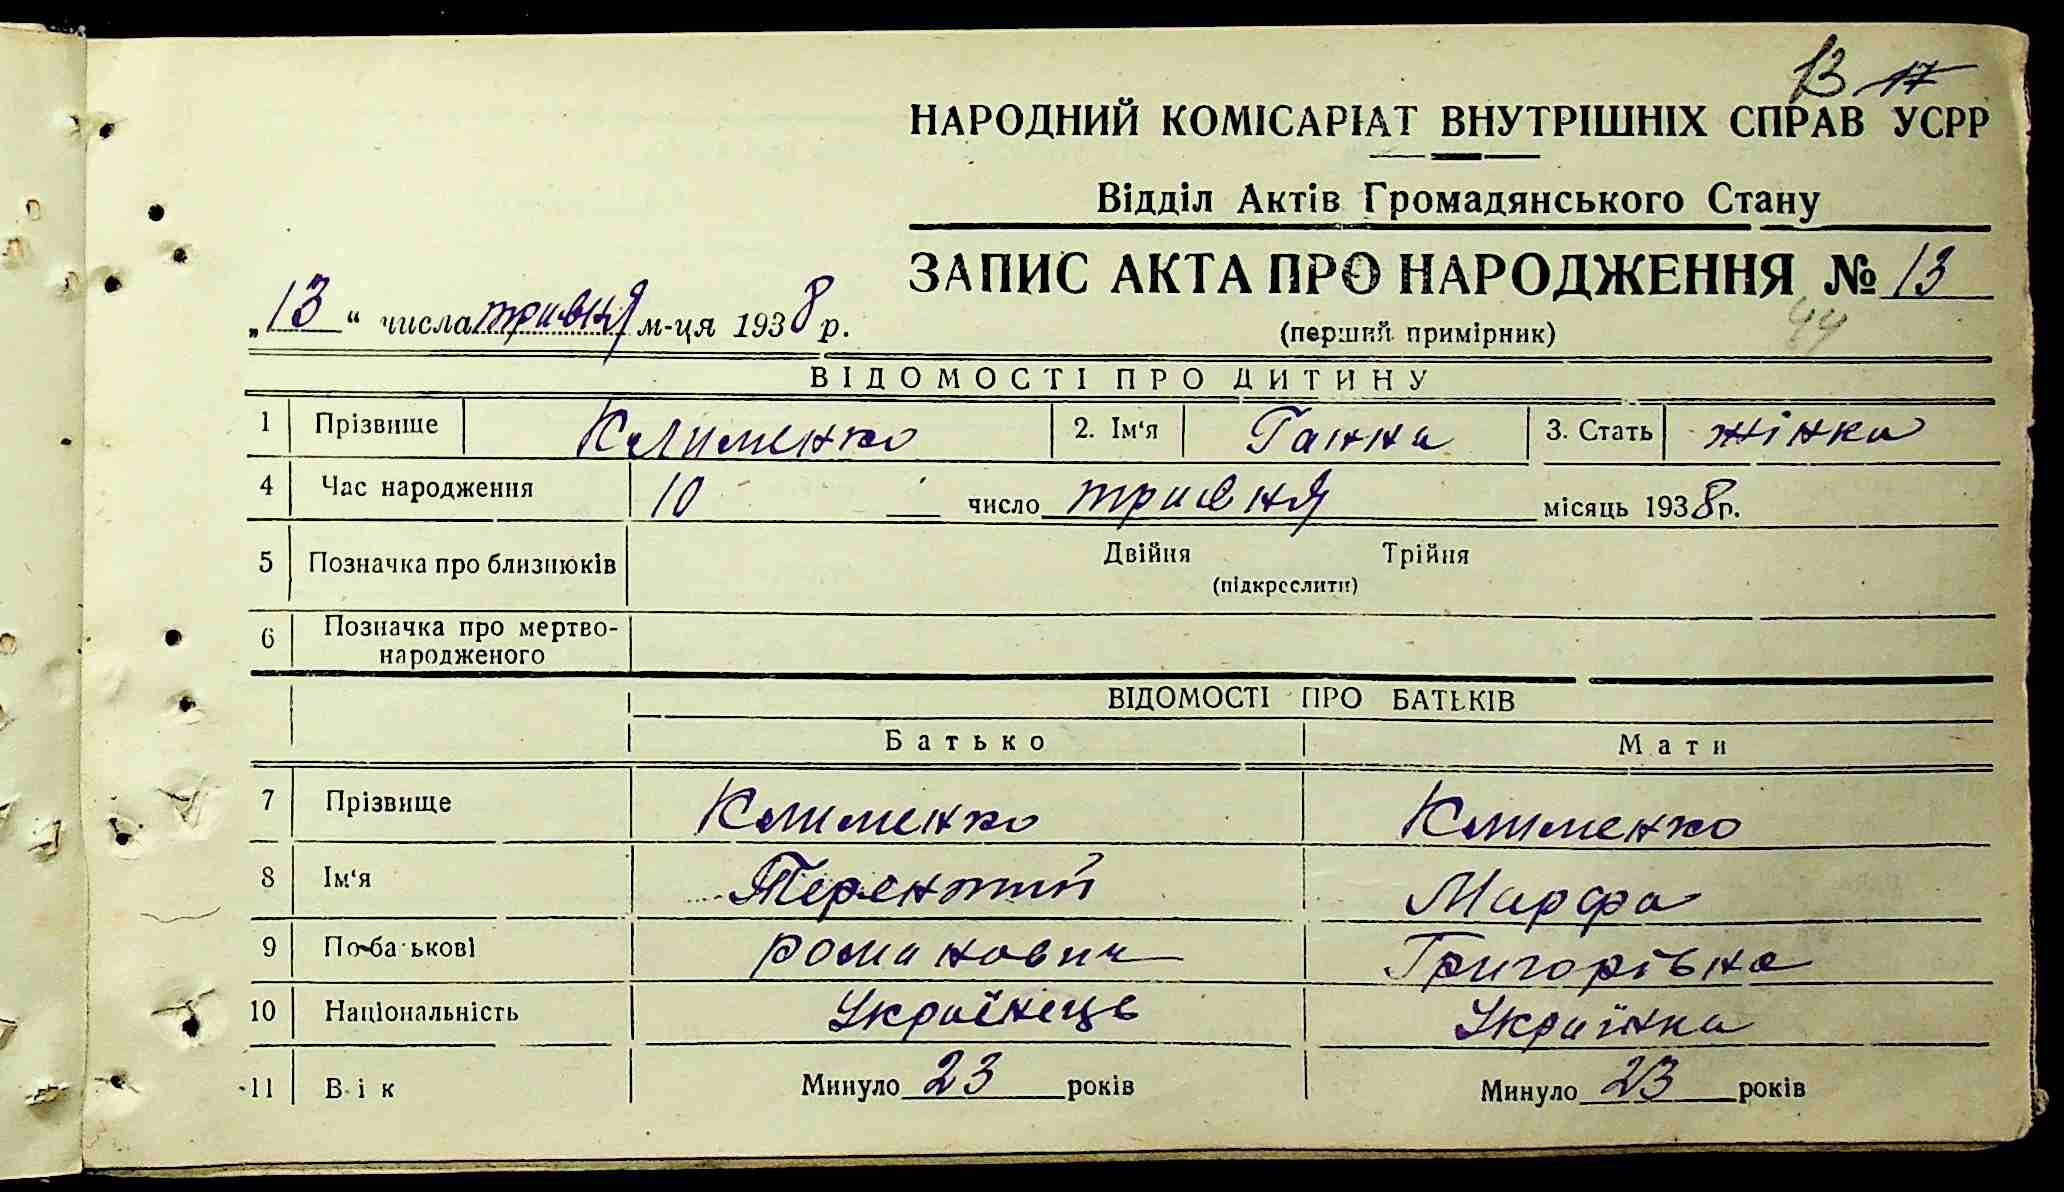 13 17
НАРОДНИЙ КОМІСАРІАТ ВНУТРІШНІХ СПРАВ УСРР
Відділ Актів Громадянського Стану
ЗАПИС АКТА ПРО НАРОДЖЕННЯ № 13
„13“ числа травня м-ця 1938 р.
(перший примірник) 44
ВІДОМОСТІ ПРО ДИТИНУ
1 Прізвище Клименко 2. Ім‘я Ганна 3. Стать жінка
4 Час народження 10 число травня місяць 1938 р.
5 Позначка про близнюків Двійня Трійня
(підкреслити)
6 Позначка про мертво-
народженого
ВІДОМОСТІ ПРО БАТЬКІВ
Батько Мати
7 Прізвище Клименко Клименко
8 Ім‘я Терентий Марфа
9 По-батькові романович Григорівна
10 Національність Українець Українка
11 Вік Минуло 23 років Минуло 23 років